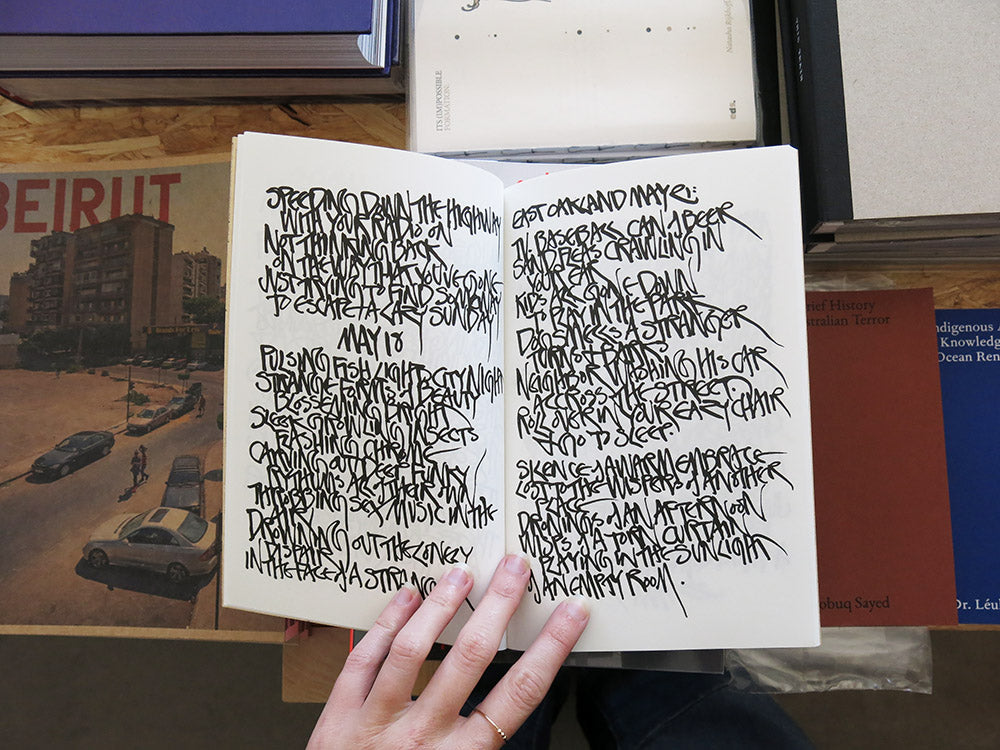 ITS (IM)POSSIBLE
FORMATION
Natasha
eds.
BEIRUT
SPEEDING DOWN THE HIGHWAY
WITH YOUR RADIO ON
NOT THINKING BACK
ON THE WAY THAT YOU'VE GONE
JUST TRYING TO FIND SOMEWAY
TO ESCAPE A LAZY SUNDAY
MAY 18
PULSING FISH LIGHT CITY NIGHT
STRANGE FORMS BEAUTY
BLOSSOMING BRIGHT
SLEEK GROWLING INSECTS
FLASHING CHROME
CARVING OUT DEEP FUNKY
RYTHUMS ALL THEIR OWN
THROBBING SEX MUSIC IN THE
DROWNING OUT THE LONELY
IN THE FACE OF A
EAST OAKLAND MAY 21:
T.V. BASEBALL CAN OF BEER
SAND FLEAS CRAWLING IN
YOUR EAR
KIDS ARE GONE DOWN
TO PLAY IN THE PARK
DOG SMELLS A STRANGER
BARK
NEIGHBOR WASHING HIS CAR
ACCROSS THE STREET.
ROLL OVER IN YOUR EAZY CHAIR
& GO TO SLEEP.
SILENCE OF A WARM EMBRACE
LOST TO THE WISPERS OF ANOTHER
PLACE
DRONING OF AN AFTERNOON
WISPS OF A TORN CURTAIN
PLAYING IN THE SUNLIGHT
OF AN EMPTY ROOM.
rief History
stralian Terror
obuq Sayed
ndigenous
Knowledg
Ocean Ren
Dr. Léul